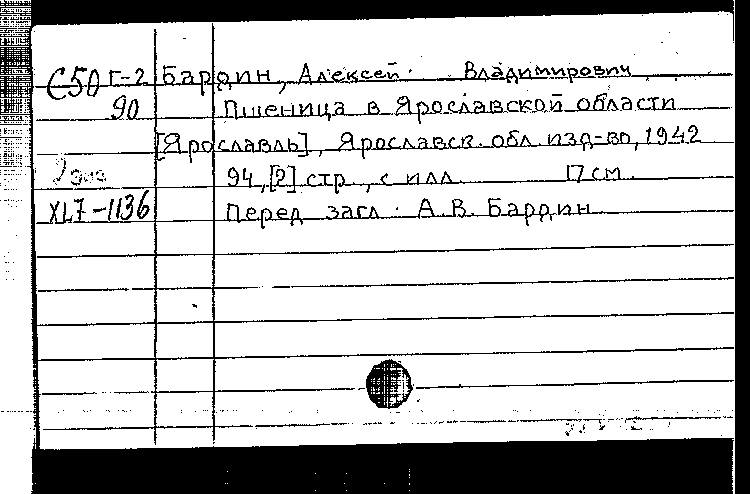 С50 Г-2 Бардин, Алексей Владимирович
90 Пшеница в Ярославской области
[Ярославль], Ярославск. обл. изд-во, 1942
2 экз 94, [2] стр., с илл. 17 см.
XL7-1136 Перед загл. А.В. Бардин